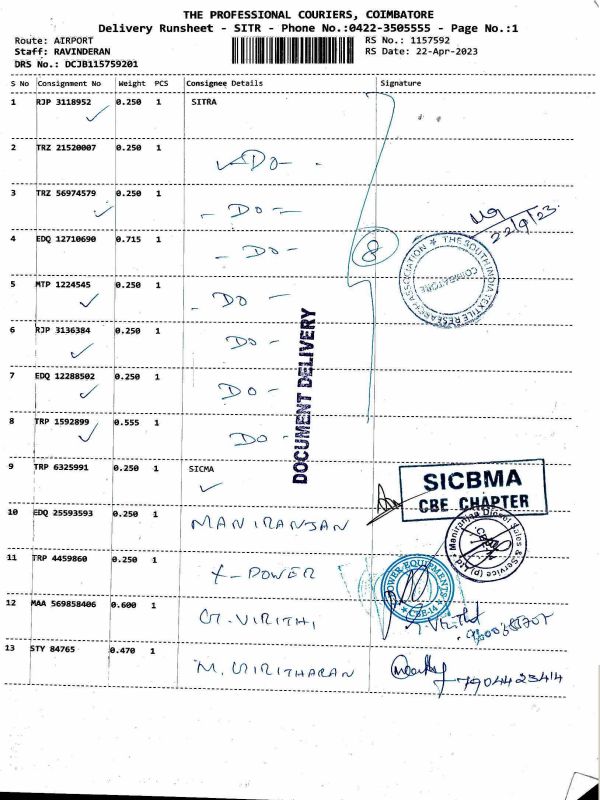 THE PROFESSIONAL COURIERS, COIMBATORE
Delivery Runsheet - SITR - Phone No.:0422-3505555 - Page No.:1
Route: AIRPORT
RS No.: 1157592
Staff: RAVINDERAN
RS Date: 22-Apr-2023
DRS No.: DCJB115759201
S No Consignment No Weight PCS Consignee Details Signature
1 RJP 3118952 0.250 1 SITRA
2 TRZ 21520007 0.250 1 DO
3 TRZ 56974579 0.250 1 - DO -
22/9/23.
4 EDQ 12710690 0.715 1 - DO - 8
THE SOUTH INDIA TEXTILE RESEARCH ASSOCIATION
COIMBATORE
5 MTP 1224545 0.250 1 - DO -
6 RJP 3136384 0.250 1 DO -
DOCUMENT DELIVERY
7 EDQ 12288502 0.250 1 - DO -
8 TRP 1592899 0.555 1 DO -
9 TRP 6325991 0.250 1 SICMA
SICBMA
CBE CHAPTER
10 EDQ 25593593 0.250 1 MANIRANJAN
Maniranjan Diesel Sales & Service (p) Ltd
11 TRP 4459860 0.250 1 X-POWER
POWER EQUIPMENTS
CBE-14
12 MAA 569858406 0.600 1 G.VIRITHI
13 STY 84765 0.470 1 M. VIRITHARAN
7904423414